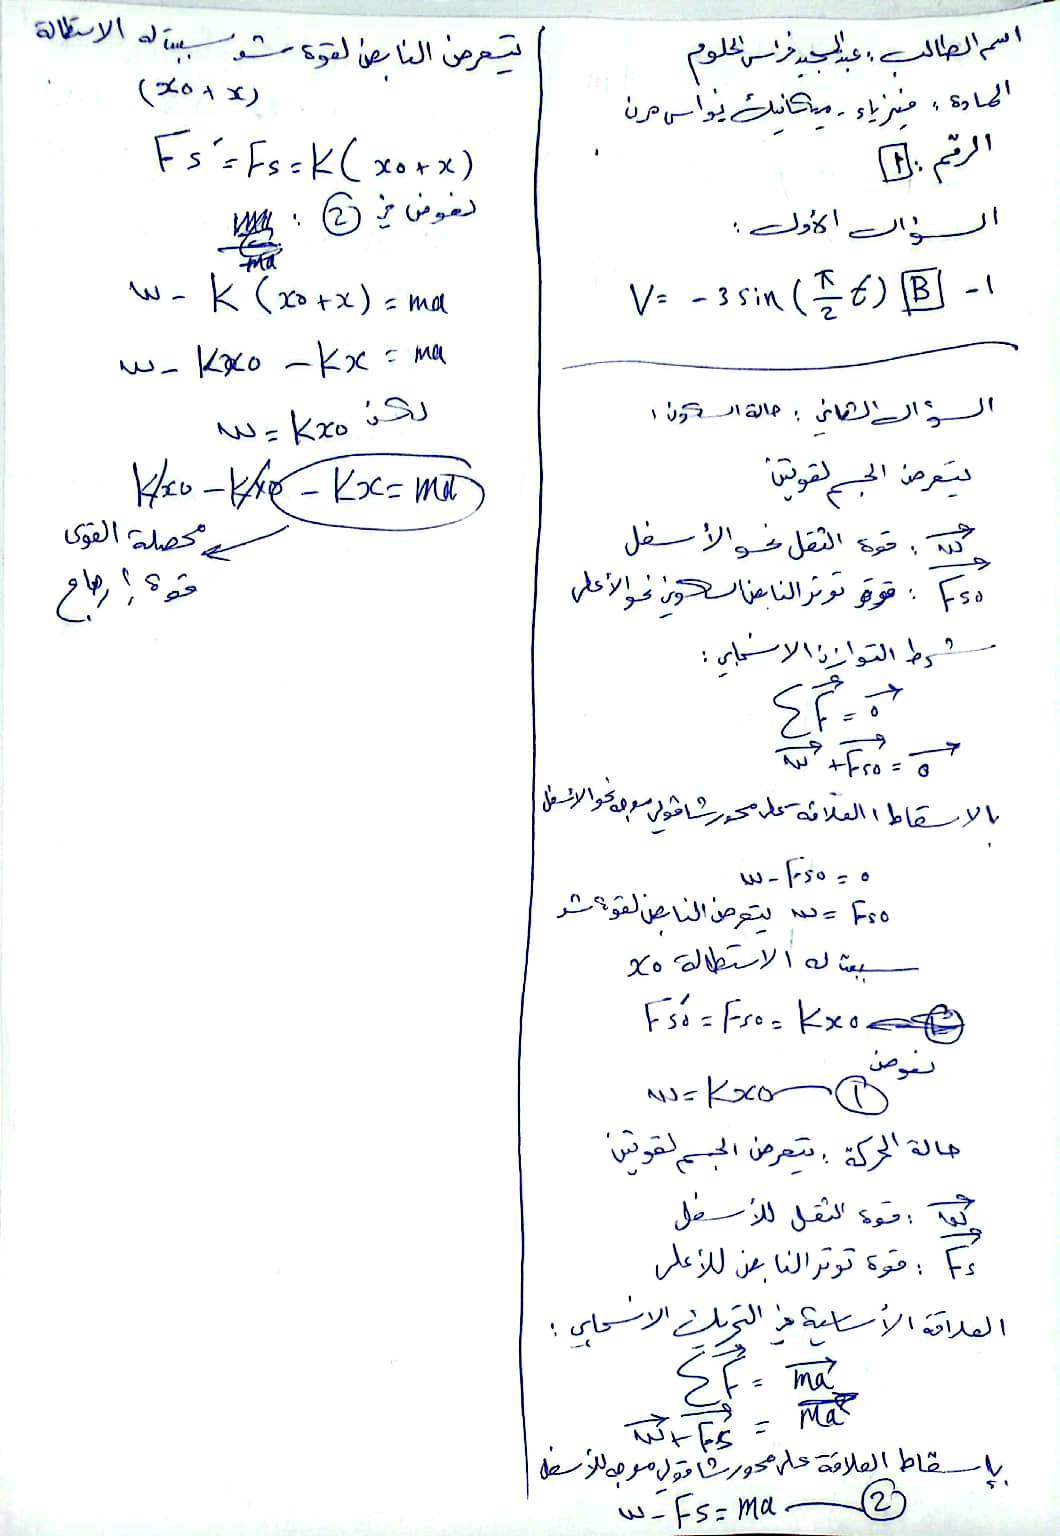 اسم الطالب : عبد المجيد فراس الحلوم
المادة : فيزياء - ميكانيك نواس مرن
الرقم : 1
السؤال الأول :
1- B V = -3 sin (π/2 t)
السؤال الثاني : حالة السكون :
يتعرض الجسم لقوتين
W⃗ : قوة الثقل نحو الأسفل
F⃗s0 : قوة توتر النابض السكوني نحو الأعلى
شرط التوازن الانسحابي :
∑F⃗ = 0⃗
W⃗ + F⃗s0 = 0⃗
بالاسقاط العلاقة على محور شاقولي موجه نحو الأسفل
w - Fs0 = 0
w = Fs0 يتعرض النابض لقوة شد
سببت له الاستطالة x0
Fs0' = Fs0 = Kx0
نعوض
w = Kx0 ①
حالة الحركة : يتعرض الجسم لقوتين
W⃗ : قوة الثقل للأسفل
F⃗s : قوة توتر النابض للأعلى
العلاقة الأساسية في التحريك الانسحابي :
∑F⃗ = ma⃗
W⃗ + F⃗s = ma⃗
بإسقاط العلاقة على محور شاقولي موجه للأسفل
w - Fs = ma ②
يتعرض النابض لقوة شد سببت له الاستطالة
(x0 + x)
Fs' = Fs = K(x0 + x)
نعوض في ② :
w - K(x0 + x) = ma
w - Kx0 - Kx = ma
لكن w = Kx0
Kx0 - Kx0 - Kx = ma
محصلة القوى
قوة إرجاع